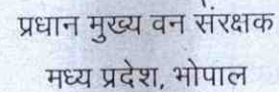 प्रधान मुख्य वन संरक्षक
मध्य प्रदेश, भोपाल